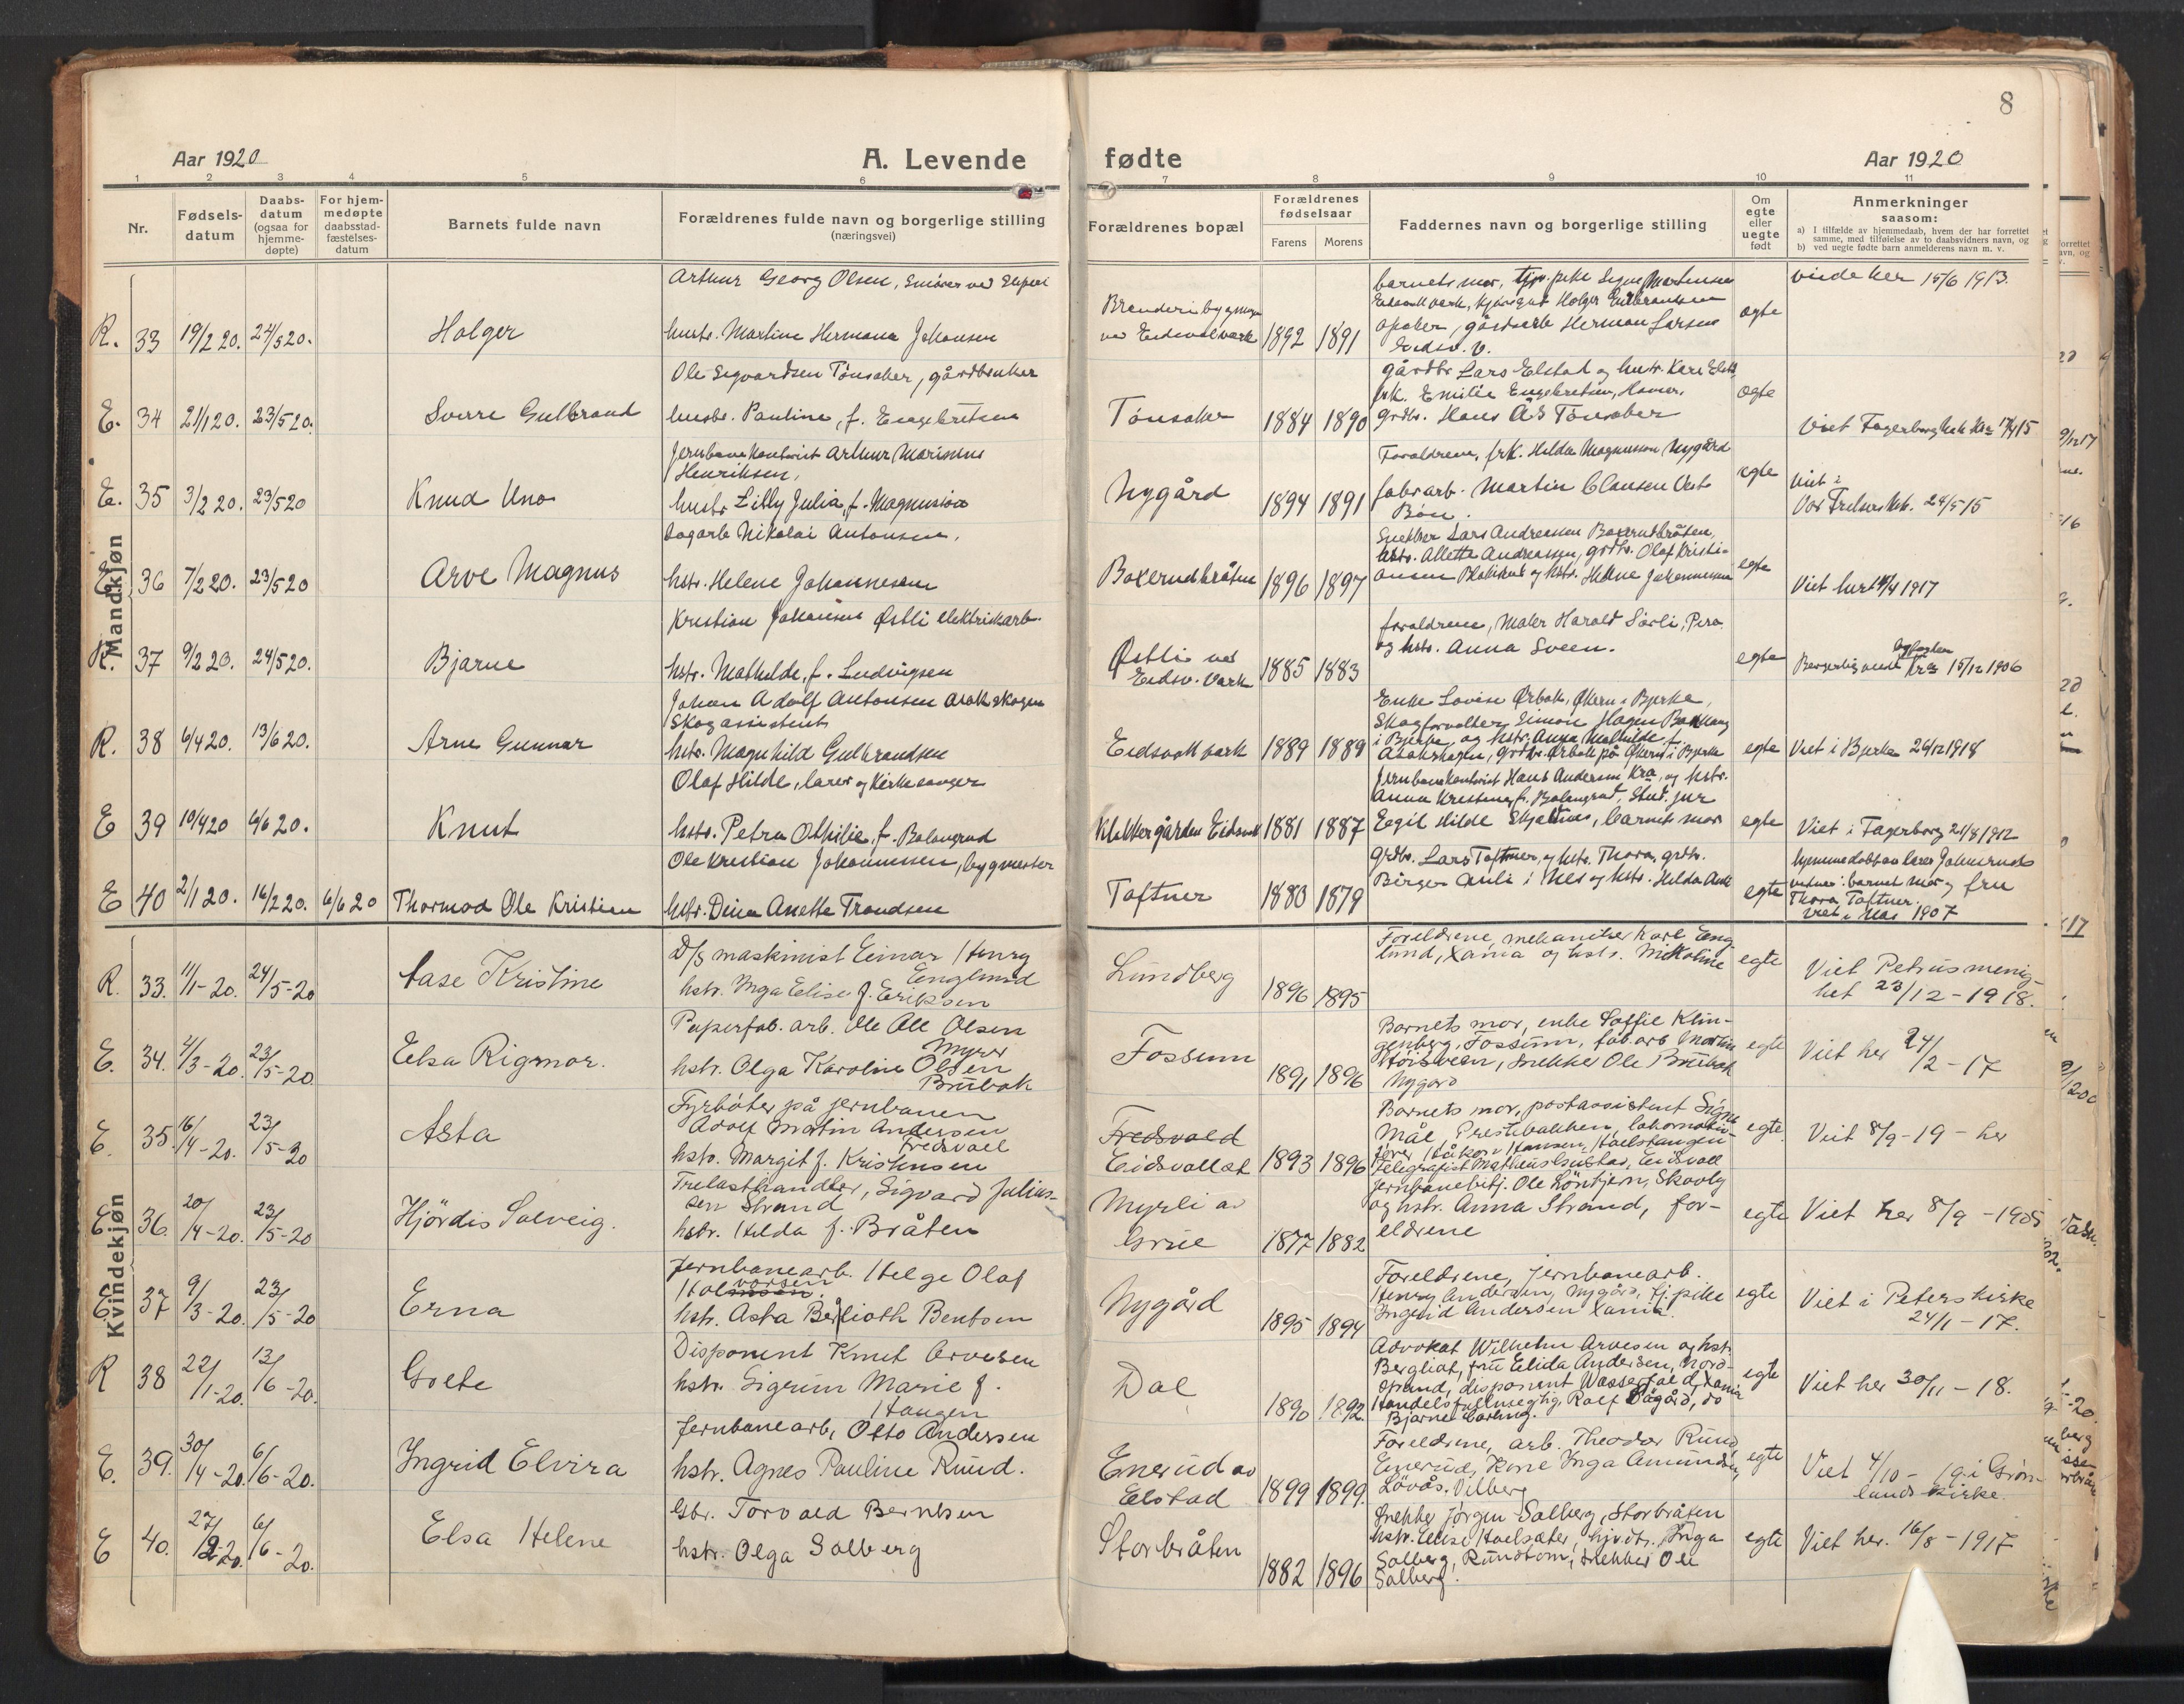 8
Aar 1920
A. Levende fødte
Aar 1920
1 2 3 4 5 6 7 8 9 10 11
Nr.
Fødsels-
datum
Daabs-
datum
(ogsaa for
hjemme-
døpte)
For hjem-
medøpte
daabsstad-
fæstelses-
datum
Barnets fulde navn
Forældrenes fulde navn og borgerlige stilling
(næringsvei)
Forældrenes bopæl
Forældrenes
fødselsaar
Farens Morens
Faddernes navn og borgerlige stilling
Om
egte
eller
uegte
født
Anmerkninger
saasom:
a) I tilfælde av hjemmedaab, hvem der har forrettet
samme, med tilføielse av to daabsvidners navn, og
b) ved uegte fødte barn anmelderens navn m. v.
Mandkjøn
R. 33 19/2 20. 24/5 20.
Holger
Arthur Georg Olsen,
hustr. Martine Hermana Johansen
ved Eidsvolverk
1892 1891
barnets mor, Signe Martinsen
Holger Gulbrandsen
Herman Larsen
Eidsv. V.
egte
viede her 15/6 1913.
E. 34 21/1 20. 23/5 20.
Sverre Gulbrand
Ole Sigvardsen Tønsaker, gårdbruker
hustr. Pauline, f. Engebretsen
Tønsaker
1884 1890
gårdbr. Lars Elstad og hustr.
frk. Emilie Engebretsen, Hamar,
grdbr. Hans Tønsaker
egte
Viet Fagerborg
E. 35 3/2 20. 23/5 20
Knud Uno
Jernbanekontorist Arthur Marinius
Henriksen,
hustr. Lilly Julia, f. Magnusson
Nygård
1894 1891
Foraldrene, frk. Hilda Magnusson Nygård
fabr.arb. Martin Clausen
Bøn.
egte
Viet i
Vor Frelsers kk. 24/5 15
E. 36 7/2 20. 23/5 20
Arve Magnus
Nikolai Antonsen,
hstr. Helene Johannesen
Boxerudbråten
1896 1897
Snekker Lars Andreassen Boxerudbråten,
hstr. Alette Andreassen, grdbr. Olaf Kristi-
ansen og hstr. Johannessen
egte
Viet her 1917
R. 37 9/2 20. 24/5 20.
Bjarne
Kristian Johansen Østli elektriskarb.
hstr. Mathilde, f. Ludvigsen
Østli ved
Eidsv. Verk
1885 1883
foraldrene, Maler Harald Sørli,
og hstr. Anna Sveen.
egte
Borgerlig viede Kra 15/12 1906
R. 38 6/4 20. 13/6 20.
Arne Gunnar
Johan Adolf Antonsen Aasakskogen
Skogassistent
hstr. Magnhild Gulbrandsen
Eidsvoll verk
1889 1889
Enke Lovise Ørbak, Økern i Bjerke,
Skogforvalter Simon Hagen
i Bjerke og hstr. Anna Mathilde f.
grdbr. Ørbak på Økern i Bjerke
egte
Viet i Bjerke 26/12 1918
E 39 10/4 20 6/6 20.
Knut
Olaf Hilde, lærer og kirkesanger
hstr. Petra Othilie, f. Balangrud
Klokkergården Eidsvoll
1881 1887
Jernbanekontorist Hans Andersen Kra, og hstr.
Anna Kristine f. Balangrud, Stud. jur
Egil Hilde, barnets mor
egte
Viet i Fagerborg 21/8 1912
E 40 2/1 20. 16/2 20. 6/6 20
Thormod Ole Kristian
Ole Kristian Johannessen, bygmester
hstr. Dina Anette Trondsen
Toftner
1880 1879
Grdbr. Lars Toftner, og hstr. Thora, grdbr.
Birger Auli i Nes og hstr. Hilda Auli
egte
hjemmedøbt av lærer
vidner: barnets mor og fru
Thora Toftner.
viet i Nes 1907
Kvindekjøn
R. 33. 11/1-20. 24/5-20
Aase Kristine
D/S maskinist Einar Henry
Englund
hstr. Inga Elise f. Eriksen
Lundberg
1896 1895
Foreldrene, mekaniker Karl Eng-
lund, Xania og hstr. Nikoline
egte
Viet Petrusmenig-
het 23/12-1918.
E. 34. 4/3-20. 23/5-20
Elsa Rigmor.
Papirfab. arb. Ole Olsen
Myrer
hstr. Olga Karoline Olsen
Brubak
Fossum
1891 1896
Barnets mor, enke Saffie Klin-
genberg, Fossum, fab. arb. Martin
Høisveen, snekker Ole Brubak
Nygard
egte
Viet her 24/2-17
E. 35. 16/4-20. 23/5-20
Asta
Fyrbøter på jernbanen
Adolf Martin Andersen
Fredsvoll
hstr. Margit f. Kristensen
Fredsvold
Eidsvollst.
1893 1896
Barnets mor, postassistent Signe
Måe, Prestbakken, lokomotiv-
fører Håkon Hansen,
Telegrafist Matheus Gulstad, Eidsvoll
egte
Viet 8/9-19 - her
E 36. 20/4-20. 23/5-20
Hjördis Solveig.
Trelasthandler, Sigvard Julius-
sen Strand
hstr. Hilda f. Bråten
Myrli av
Grue
1877 1882
Jernbanebetj. Ole Löntjern, Skovly
og hstr. Anna Strand, for-
eldrene
egte
Viet her 8/9-1905
E. 37 9/3-20. 23/5-20
Erna
Jernbanearb. Helge Olaf
Halvorsen.
hstr. Asta Berlioth Bentsen
Nygård
1895 1894
Foreldrene, jernbanearb.
Henry Andersen, Nygård, tj. pike
Ingrid Andersen Xania.
egte
Viet i Peterskirke
24/1-17.
R 38 22/1-20. 13/6-20.
Grete
Disponent Knut Arvesen
hstr. Sigrun Marie f.
Haugen
Dal
1890 1892.
Advokat Wilhelm Arvesen og hstr.
Bergliot, fru Elida Andersen, Nord-
strand, disponent Wasserfald, Xania
Handelsfullmegtig Ralf Dågård, do
Bjarne Carling.
egte
Viet her 30/11-18.
E. 39. 30/4-20. 6/6-20.
Ingrid Elvira
Jernbanearb. Otto Andersen
hstr. Agnes Pauline Ruud.
Enerud av
Elstad
1899 1899.
Foreldrene, arb. Theodor Ruud
Enerud, Kone Inga Amundsen
Lövås, Vilberg
egte
Viet 4/10-19 i Grøn-
lands kirke.
E 40. 27/2-20. 6/6-20.
Elsa Helene
Gbr. Torvald Berntsen
hstr. Olga Solberg
Storbråten
1882 1896
Snekker Jörgen Solberg, Storbråten
hstr. Elise Inga
Solberg, Rundtom, snekker Ole
Solberg.
egte
Viet her. 16/8-1917